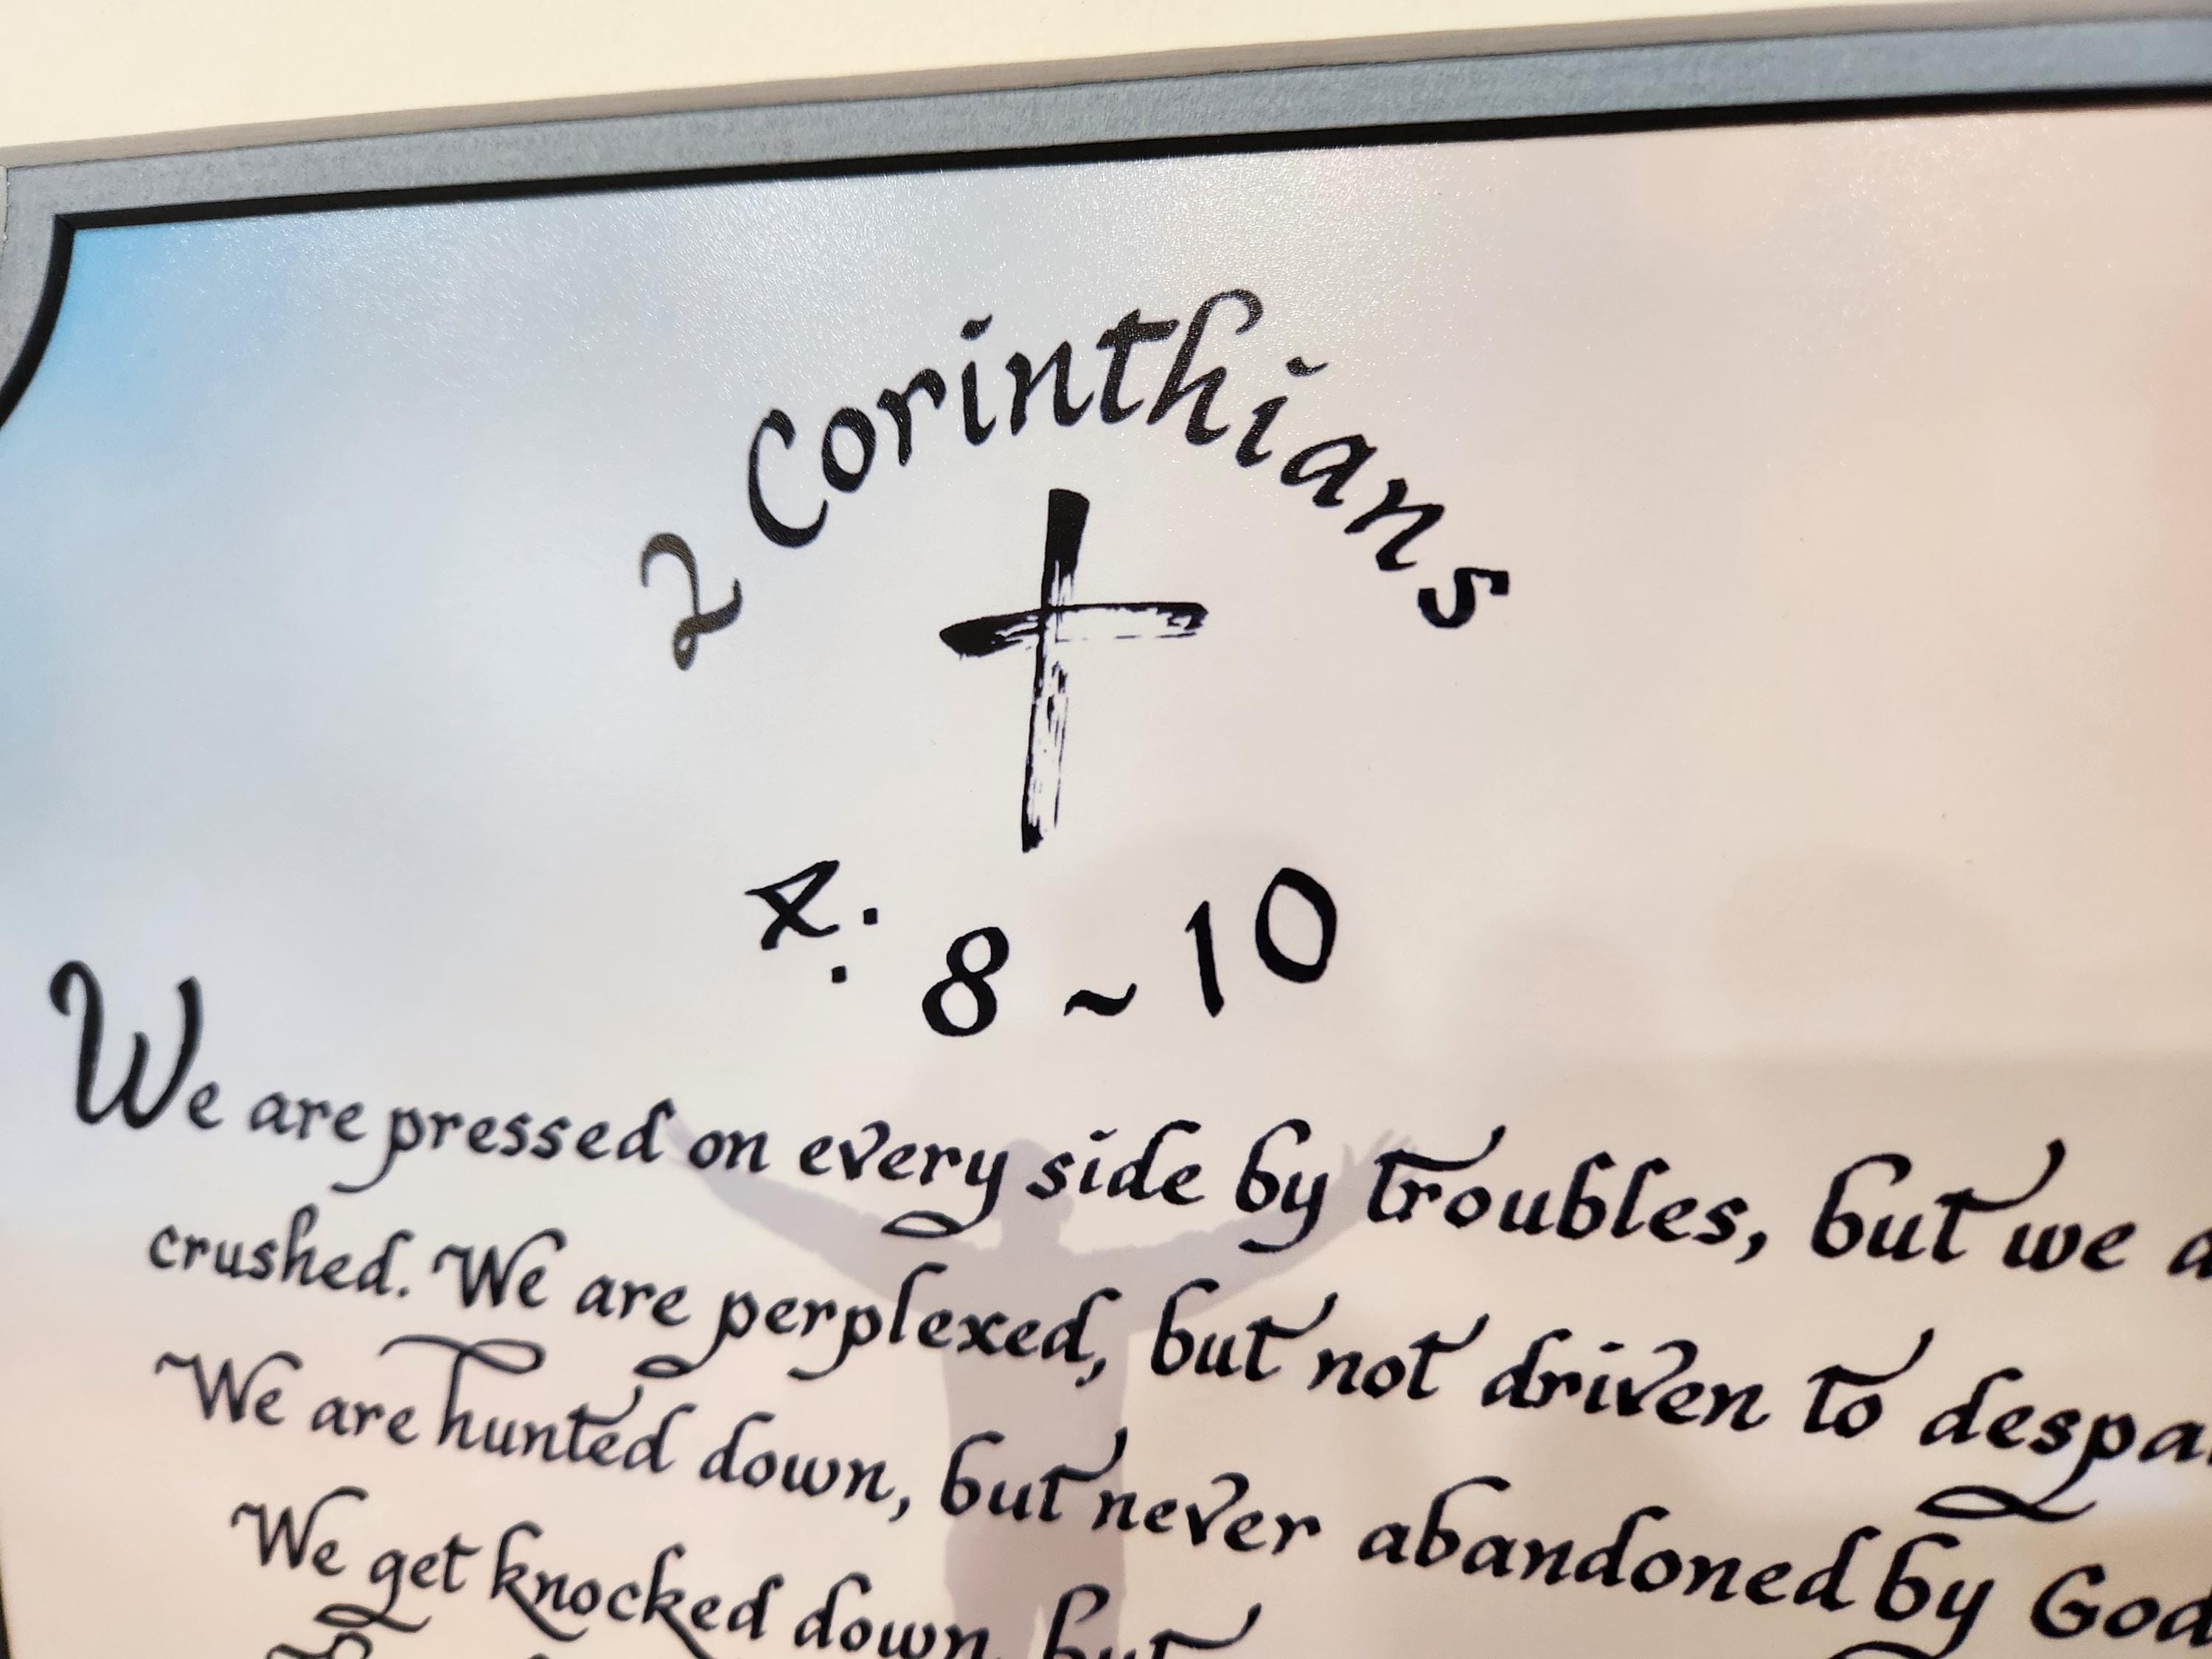 2 Corinthians
4: 8 ~ 10
We are pressed on every side by troubles, but we
crushed. We are perplexed, but not driven to
We are hunted down, but never abandoned by God
We get knocked down, but